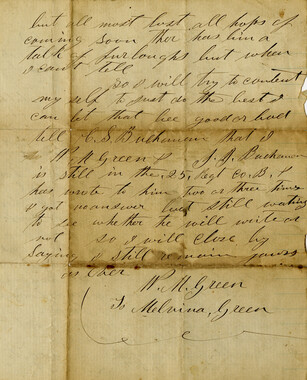 but all most lost all hopes of
coming soon ther has bin a
talk of furloughs but when
I cant tell
so I will try to content
my self to just do the best I
can let that bee good or bad
tell C. S. Buchanan that I
W. M. Green & J. J. Buchanan
is still in the 25, Regt Co. B, I
has wrote to him two or three times
& got no answer but still waiting
to see whether he will write or
not so I will close by
Saying I still remain yours
as Ever
W. M. Green
To Melvina, Green